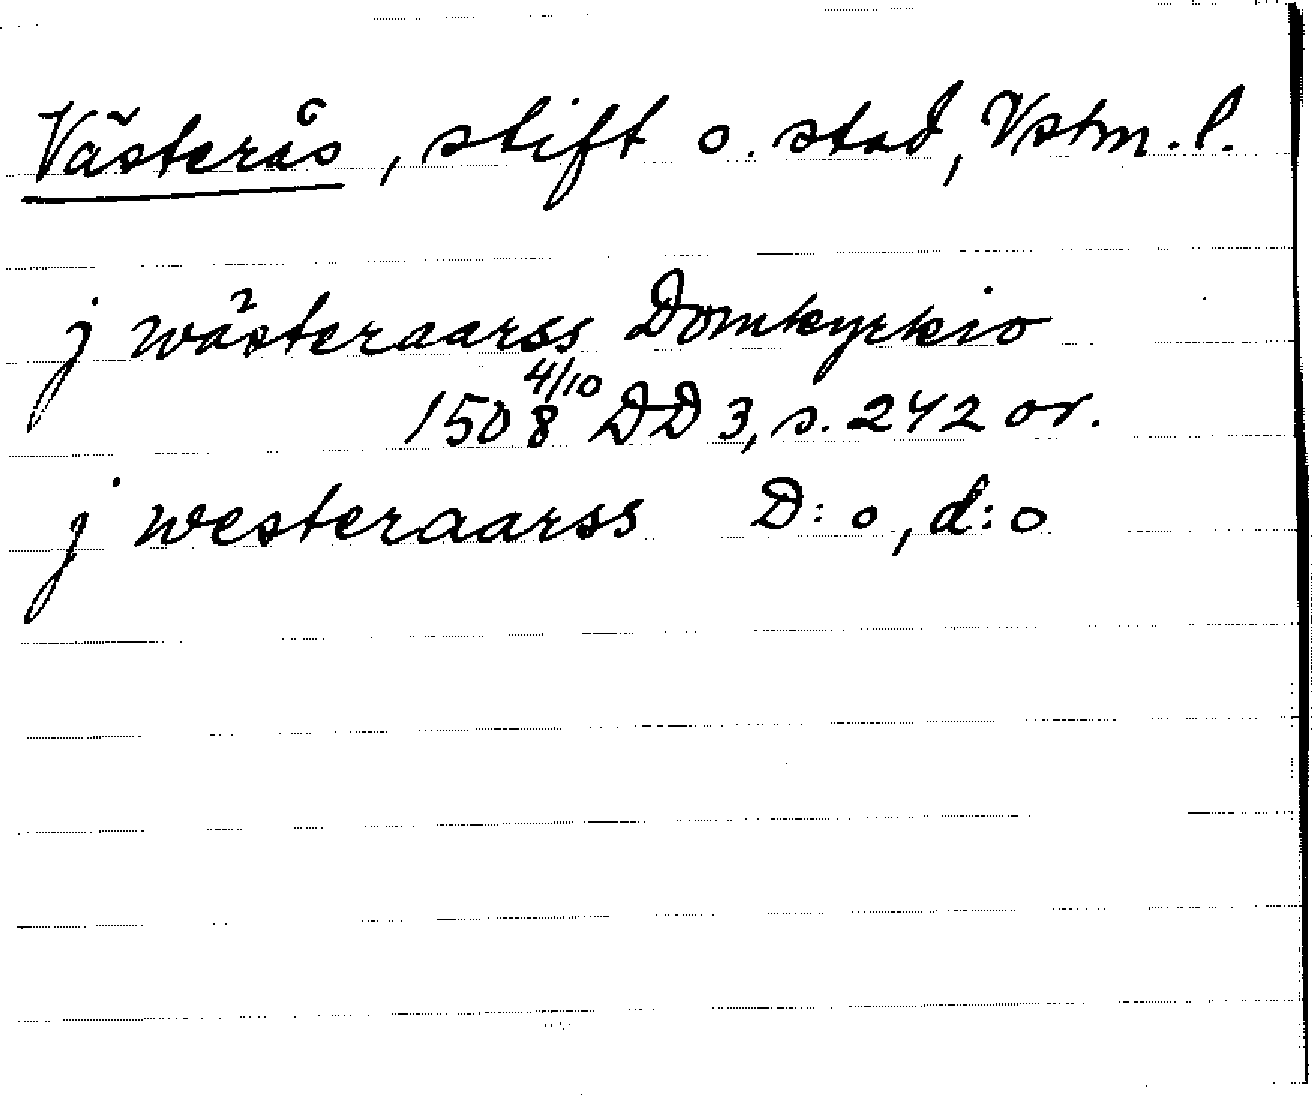 Västerås, stift o. stad, Vstm. l.
j wästeraarss Domkyrkio
1508 4/10 DD 3, s. 242 or.
j westeraarss D:o, d:o